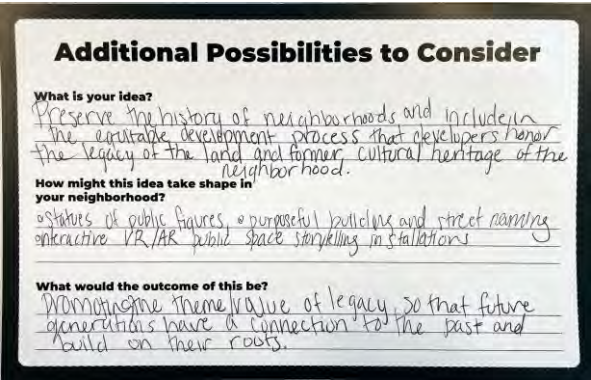 Additional Possibilities to Consider
What is your idea?
Preserve the history of neighborhoods and include in
the equitable development process that developers honor
the legacy of the land and former cultural heritage of the
neighborhood.
How might this idea take shape in
your neighborhood?
•Statues of public figures, •purposeful building and street naming
•interactive VR/AR public space storytelling installations
What would the outcome of this be?
Promoting the theme/value of legacy, so that future
generations have a connection to the past and
build on their roots.